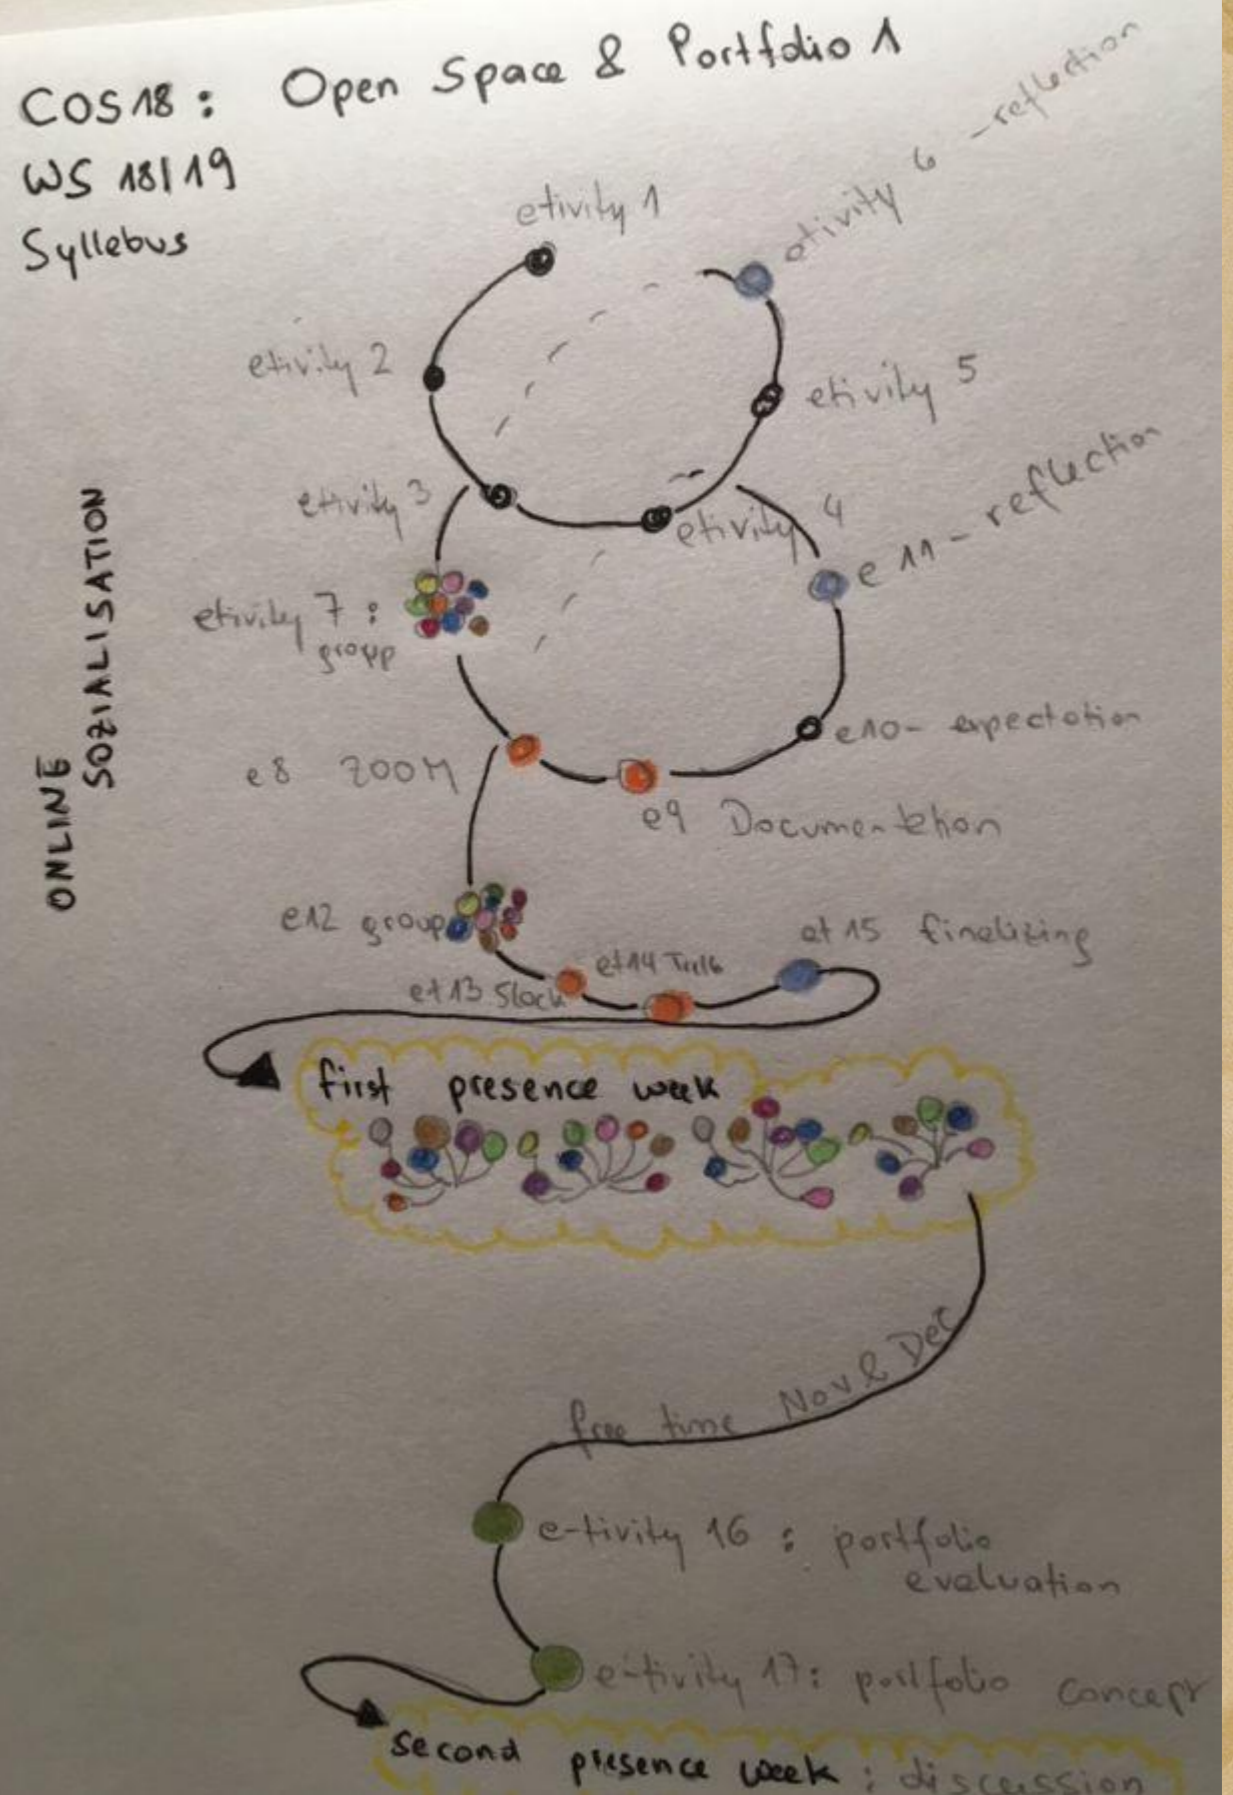 COS18: Open Space & Portfolio 1
WS 18/19
Syllebus
etivity 1
etivity 6 - reflection
etivity 2
etivity 5
etivity 3
etivity 4
e 11 - reflection
etivity 7:
group
ONLINE
SOZIALISATION
e10- expectation
e8 ZOOM
e9 Documentation
e12 group
et 15 finalizing
et14
et13 Slack
first presence week
free time Nov & Dec
e-tivity 16: portfolio
evaluation
e-tivity 17: portfolio concept
second presence week: discussion